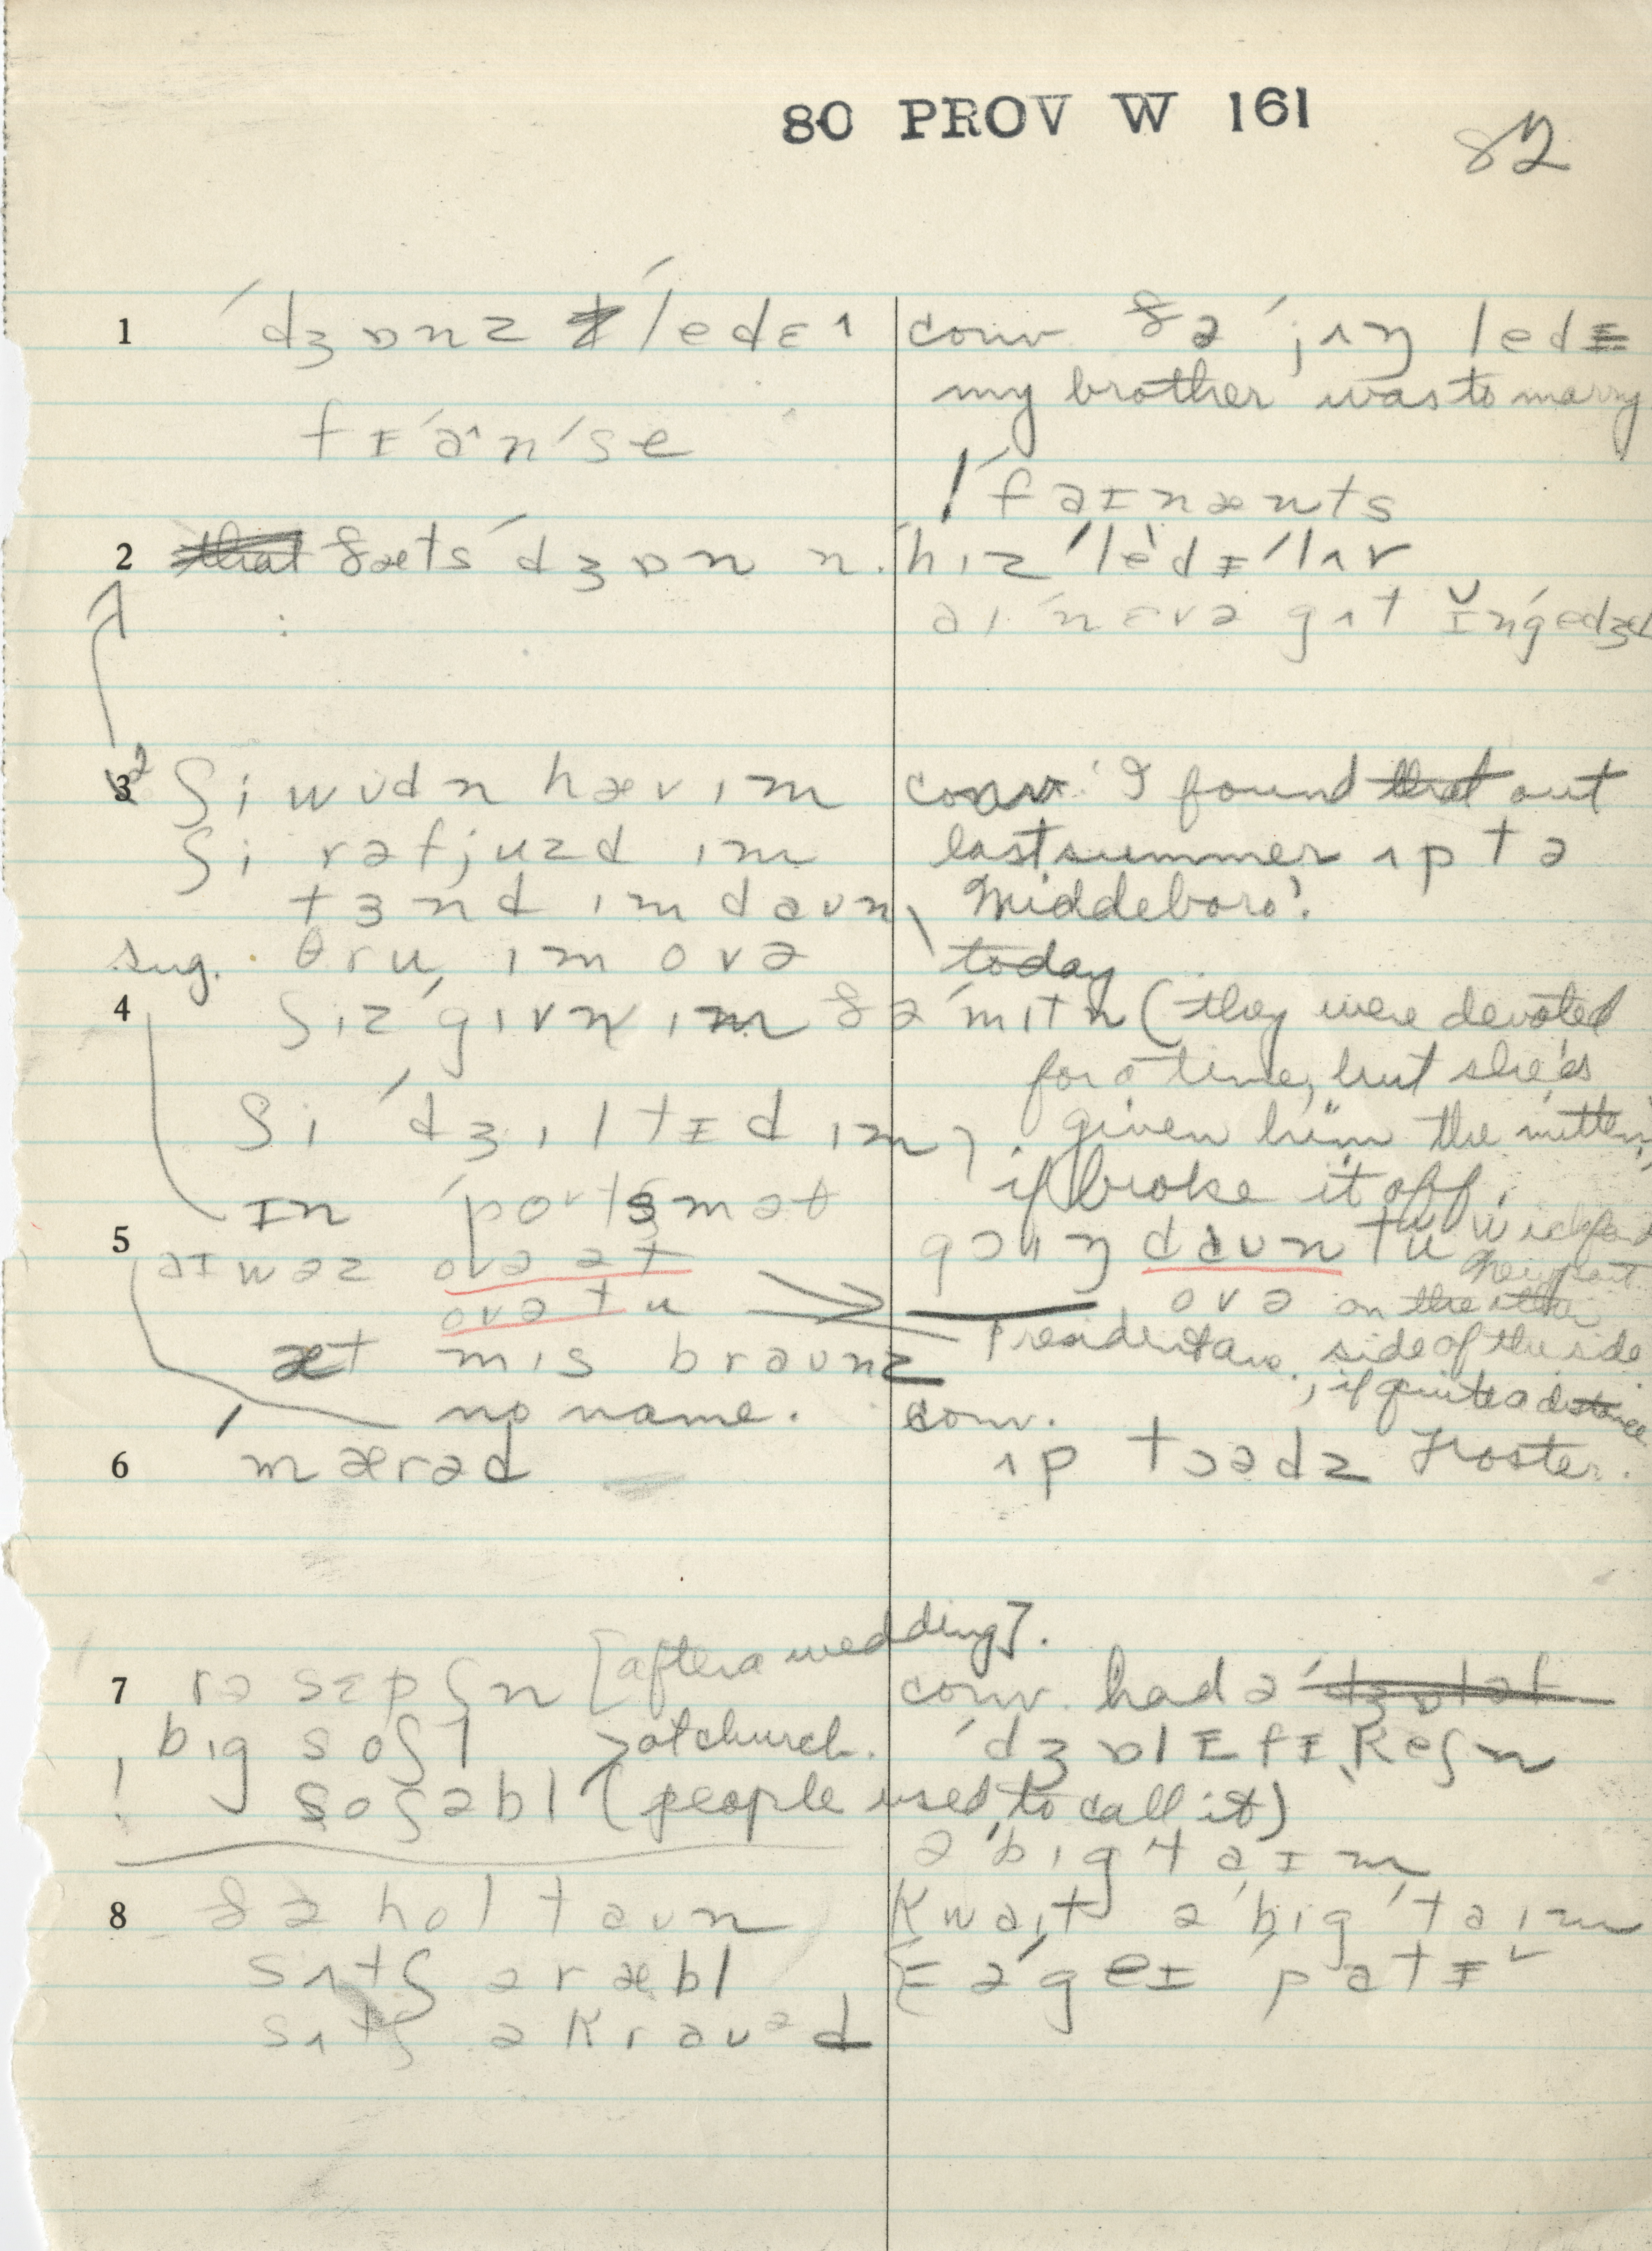 80 PROV W 161
82
1 ˈdʒɒnz ˈledɛ^ conv. ðə ˈjʌŋ ledɪ
my brother was to marry
fɪˈɑ^nˈse
ˈfaɪnænts
2 that ðæts ˈdʒɒn n. hɪz ˈledɪˈlʌv
aɪ ˈnɛvə gʌt ɪ̆nˈgedʒəd
3 2 ʃi wʊdn hæv ɪm conv. 'I found that out
ʃi rəfjuzd ɪm last summer ʌp tə
tɜnd ɪm daʊn Middleboro'.
sug. θru ɪm ovə today
4 ʃiz ˈgɪvn ɪm ðə ˈmɪtn (they were devoted
for a time, but she's
ʃi ˈdʒɪltɪd ɪm given him the mitten,
if broke it off.
ɪn ˈportsməθ
5 goɪŋ daʊn tu Wickford
aɪ wəz ovə ət Newport
ovə tu ovə on the other
æt mɪs braʊnz President ave. side of the side
no name. conv. , if quite a distance
6 ˈmærəd ʌp tɔədz Foster.
[after a wedding].
7 rəsɛpʃn conv. had ə ˈdʒɒləf
big soʃl at church. ˈdʒɒlɪfɪˌkeʃn
! soʃəbl (people used to call it)
ə ˈbɪg taɪm
8 ðə hol taʊn kwaɪt ə ˈbɪg ˈtaɪm
sʌtʃ ə ræbl ə ˈgeɪ ˈpatɪ
sʌtʃ ə kraʊəd